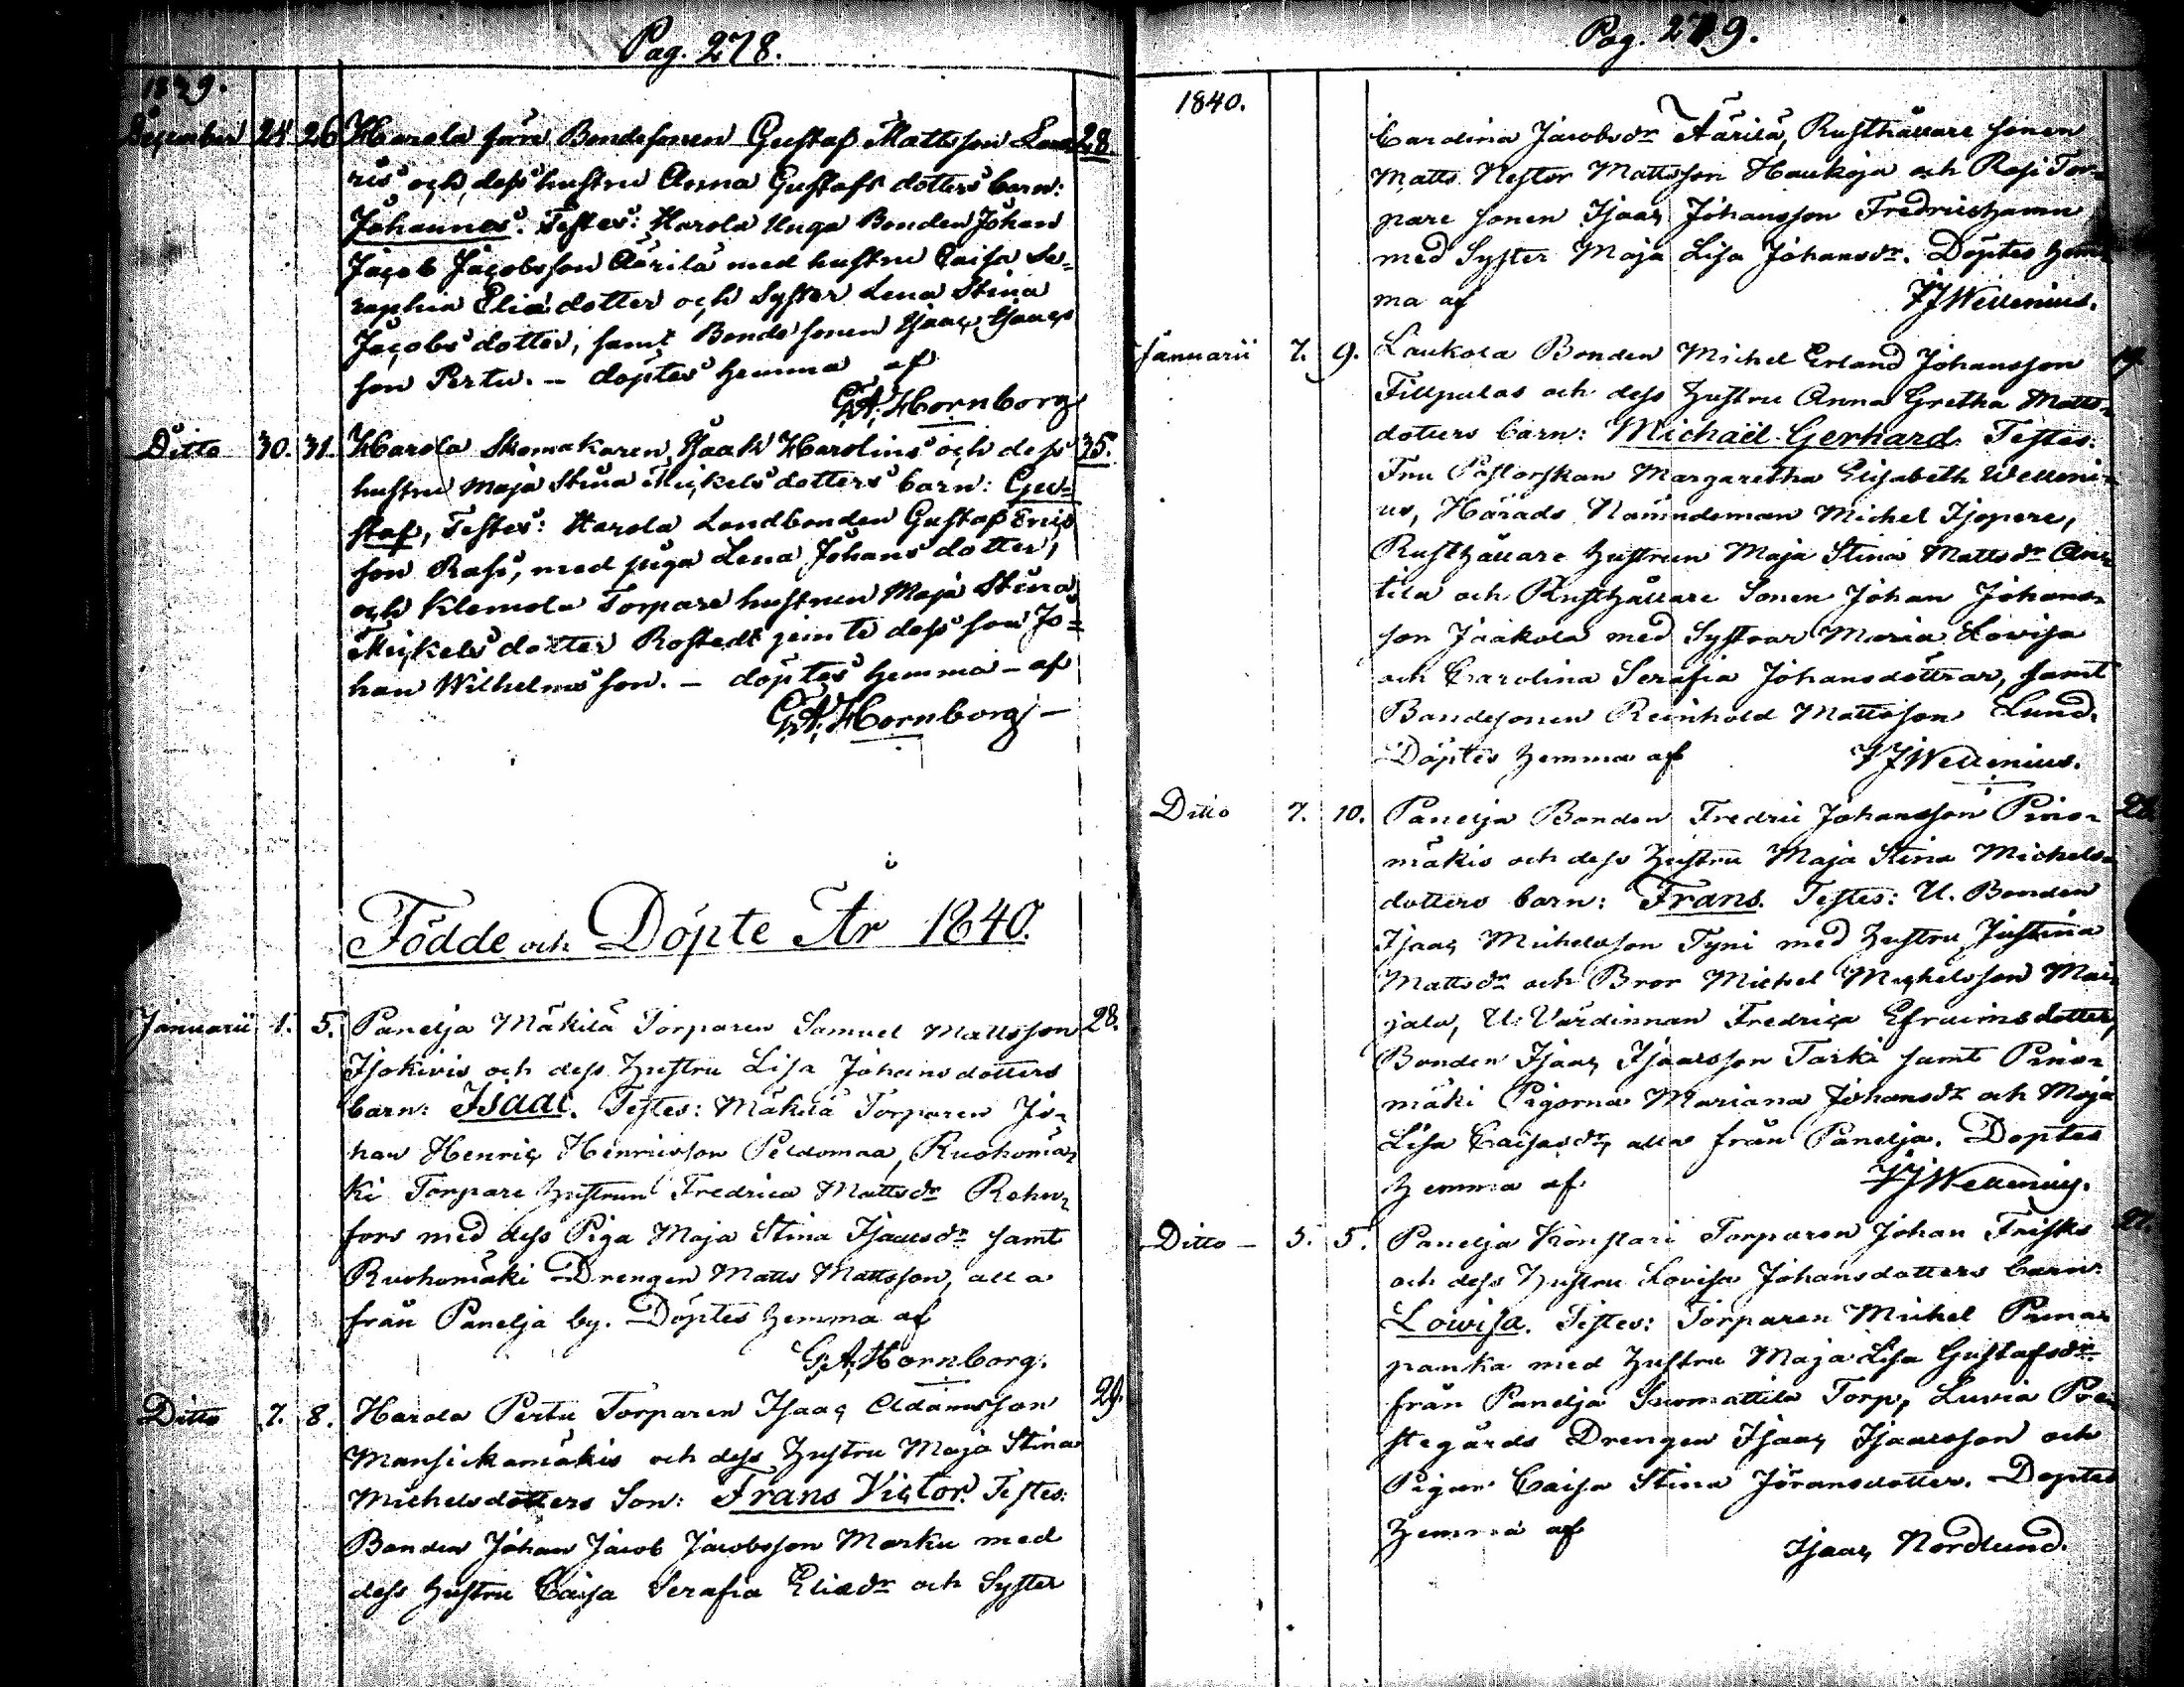 Pag. 278.
1839.
December 24 26 Harola fån Bondesonen Gustaf Mattsson Lau= 28
ris och dess hustru Anna Gustafs dotters barn:
Johannes. Testes: Harola Unga Bonden Johan
Jacob Jacobsson Äärilä med hustru Caisa Se=
raphia Elia dotter och Syster Lena Stina
Jacobs dotter, samt Bonde sonen Isaac Isaacs
son Pertu. – döptes hemma af
G.A. Hornborg
Ditto 30. 31. Harola Skomakaren Isaak Harolins och dess 35.
hustru Maja Stina Mickels dotters barn: Gu=
staf, Testes: Harola Landbonden Gustaf Erics
son Rasi, med piga Lena Johans dotter,
och Klemola Torpare hustrun Maja Stina
Mickels dotter Rostedt jemte dess son Jo=
han Wilhelmsson. – döptes hemma – af
G.A. Hornborg –
Födde och Döpte År 1840.
Januarii 1. 5. Panelja Mäkilä Torparen Samuel Mattsson 28.
Isokivis och dess Hustru Lisa Johansdotters
barn: Isaac. Testes: Mäkilä Torparen Jo=
han Henric Henricsson Peldomaa, Ruohomä=
ki Torpare Hustrun Fredrica Mattsdr Rehn=
fors med dess Piga Maja Stina Isaacsdr samt
Ruohomäki Drengen Matts Mattsson, alla
från Panelja by. Döptes hemma af
G.A. Hornborg.
Ditto 7. 8. Harola Pertu Torparen Isaac Adamsson 29.
Mansickamäkis och dess Hustru Maja Stina
Michelsdotters Son: Frans Victor. Testes:
Bonden Johan Jacob Jacobsson Marku med
dess Hustru Caisa Serafia Eliædr och Syster
Pag. 279.
1840.
Carolina Jacobsdr Äärilä, Rusthållare sonen
Matts Nestor Mattsson Haukoja och Rasi Tor=
pare sonen Isaac Johansson Fredricshamn
med Syster Maja Lisa Johansdr. Döptes hem=
ma af VJWellenius.
Januarii 7. 9. Laukola Bonden Michel Erland Johansson 19.
Fillpulas och dess Hustru Anna Gretha Matts=
dotters barn: Michaël Gerhard. Testes:
Fru Pastorskan Margaretha Elisabeth Welleni=
us, Härads Nämndeman Michel Isopere,
Rusthållare Hustrun Maja Stina Mattsdr An=
tila och Rusthållare Sonen Johan Johans=
son Jaakola med Systrar Maria Lovisa
och Carolina Serafia Johansdöttrar, samt
Bondesonen Reinhold Mattsson Lund.
Döptes hemma af VJWellenius.
Ditto 7. 10. Panelja Bonden Fredric Johansson Pino=
mäkis och dess Hustru Maja Stina Michels=
dotters barn: Frans. Testes: U. Bonden
Isaac Michelsson Tyni med Hustru Justina
Mattsdr och Bror Michel Michelsson Mai=
jala, U. Värdinnan Fredrica Efraimsdotter,
Bonden Isaac Isaacsson Tarki samt Pino=
mäki Pigorna Mariana Johansdr och Maja
Lisa Caisasdr, alla från Panelja. Döptes
hemma af VJWellenius.
Ditto – 5. 5. Panelja Könspari Torparen Johan Frisks 27.
och dess Hustru Lovisa Johansdotters barn:
Lowisa. Testes: Torparen Michel Puna=
pauka med Hustru Maja Lisa Gustafsdr
från Panelja Suomattila Torp, Luvia Pre=
stegårds Drengen Isaac Isaacsson och
Pigan Caisa Stina Jöransdotter. Döptes
hemma af Isaac Nordlund.